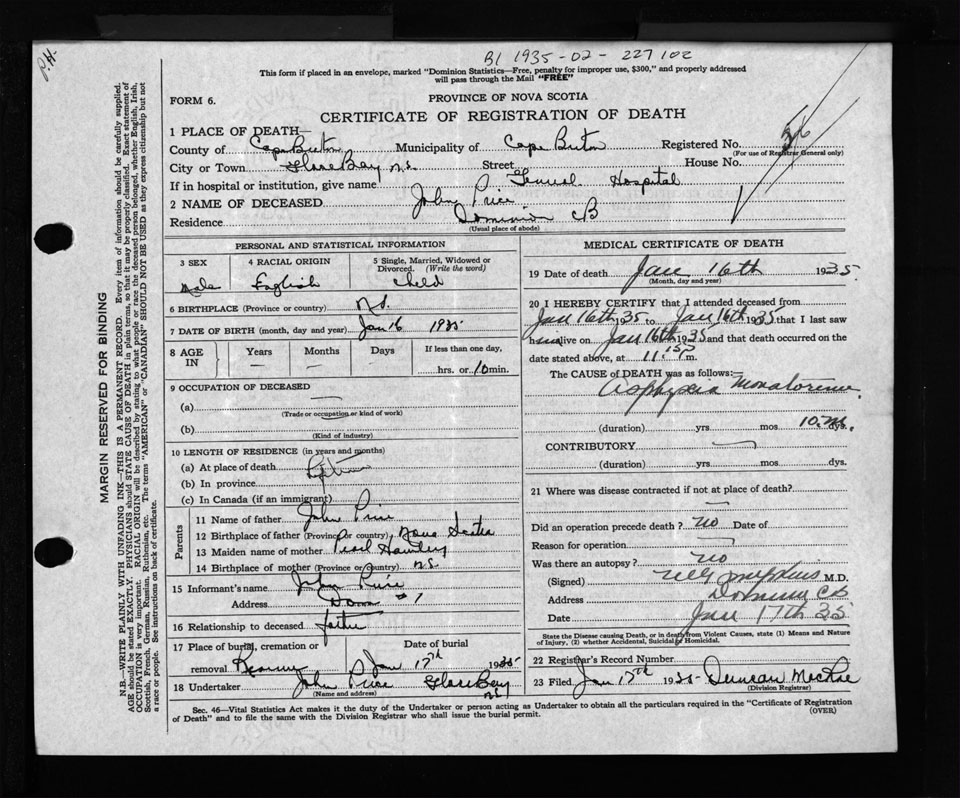 P.H.
B1 1935-02-227,102
This form if placed in an envelope, marked "Dominion Statistics—Free, penalty for improper use, $300," and properly addressed
will pass through the Mail "FREE"
FORM 6.
PROVINCE OF NOVA SCOTIA
CERTIFICATE OF REGISTRATION OF DEATH
1 PLACE OF DEATH—
County of Cape Breton Municipality of Cape Breton Registered No. 36
(For use of Registrar General only)
City or Town Glace Bay N.S. Street House No.
If in hospital or institution, give name General Hospital
2 NAME OF DECEASED John Price
Residence Dominion CB
(Usual place of abode)
PERSONAL AND STATISTICAL INFORMATION
3 SEX 4 RACIAL ORIGIN 5 Single, Married, Widowed or
Divorced. (Write the word)
Male English Child
6 BIRTHPLACE (Province or country) N.S.
7 DATE OF BIRTH (month, day and year) Jan 16 1935
8 AGE IN Years Months Days If less than one day,
hrs. or 10 min.
9 OCCUPATION OF DECEASED
(a)
(Trade or occupation or kind of work)
(b)
(Kind of industry)
10 LENGTH OF RESIDENCE (in years and months)
(a) At place of death
(b) In province
(c) In Canada (if an immigrant)
Parents
11 Name of father John Price
12 Birthplace of father (Province or country) Nova Scotia
13 Maiden name of mother Pearl
14 Birthplace of mother (Province or country) N.S.
15 Informant's name John Price
Address Dom #1
16 Relationship to deceased father
17 Place of burial, cremation or Date of burial
removal Jan 17th 1935
18 Undertaker John Price Glace Bay
(Name and address) N.S.
MEDICAL CERTIFICATE OF DEATH
19 Date of death Jan 16th 1935
(Month, day and year)
20 I HEREBY CERTIFY that I attended deceased from
Jan 16th 1935 to Jan 16th 1935 that I last saw
him alive on Jan 16th 1935 and that death occurred on the
date stated above, at 11.15 P.m.
The CAUSE of DEATH was as follows:
Asphyxia
(duration) yrs mos 10 dys.
CONTRIBUTORY
(duration) yrs mos dys.
21 Where was disease contracted if not at place of death?
Did an operation precede death? no Date of
Reason for operation
Was there an autopsy? no
(Signed) M.D.
Address Dominion CB
Date Jan 17th 35
State the Disease causing Death, or in death from Violent Causes, state (1) Means and Nature
of Injury, (2) whether Accidental, Suicidal or Homicidal.
22 Registrar's Record Number
23 Filed Jan 17th 1935 Duncan
(Division Registrar)
Sec. 46—Vital Statistics Act makes it the duty of the Undertaker or person acting as Undertaker to obtain all the particulars required in the "Certificate of Registration
of Death" and to file the same with the Division Registrar who shall issue the burial permit.
(OVER)
MARGIN RESERVED FOR BINDING
N.B.—WRITE PLAINLY WITH UNFADING INK—THIS IS A PERMANENT RECORD. Every item of information should be carefully supplied.
AGE should be stated EXACTLY. PHYSICIANS should STATE CAUSE OF DEATH in plain terms, so that it may be properly classified. Exact statement of
OCCUPATION is very important. RACIAL ORIGIN will be described by stating to what people or race the deceased person belonged, whether English, Irish,
Scottish, French, German, Russian, Ruthenian, etc. The terms "AMERICAN" or "CANADIAN" SHOULD NOT BE USED as they express citizenship but not
a race or people. See instructions on back of certificate.